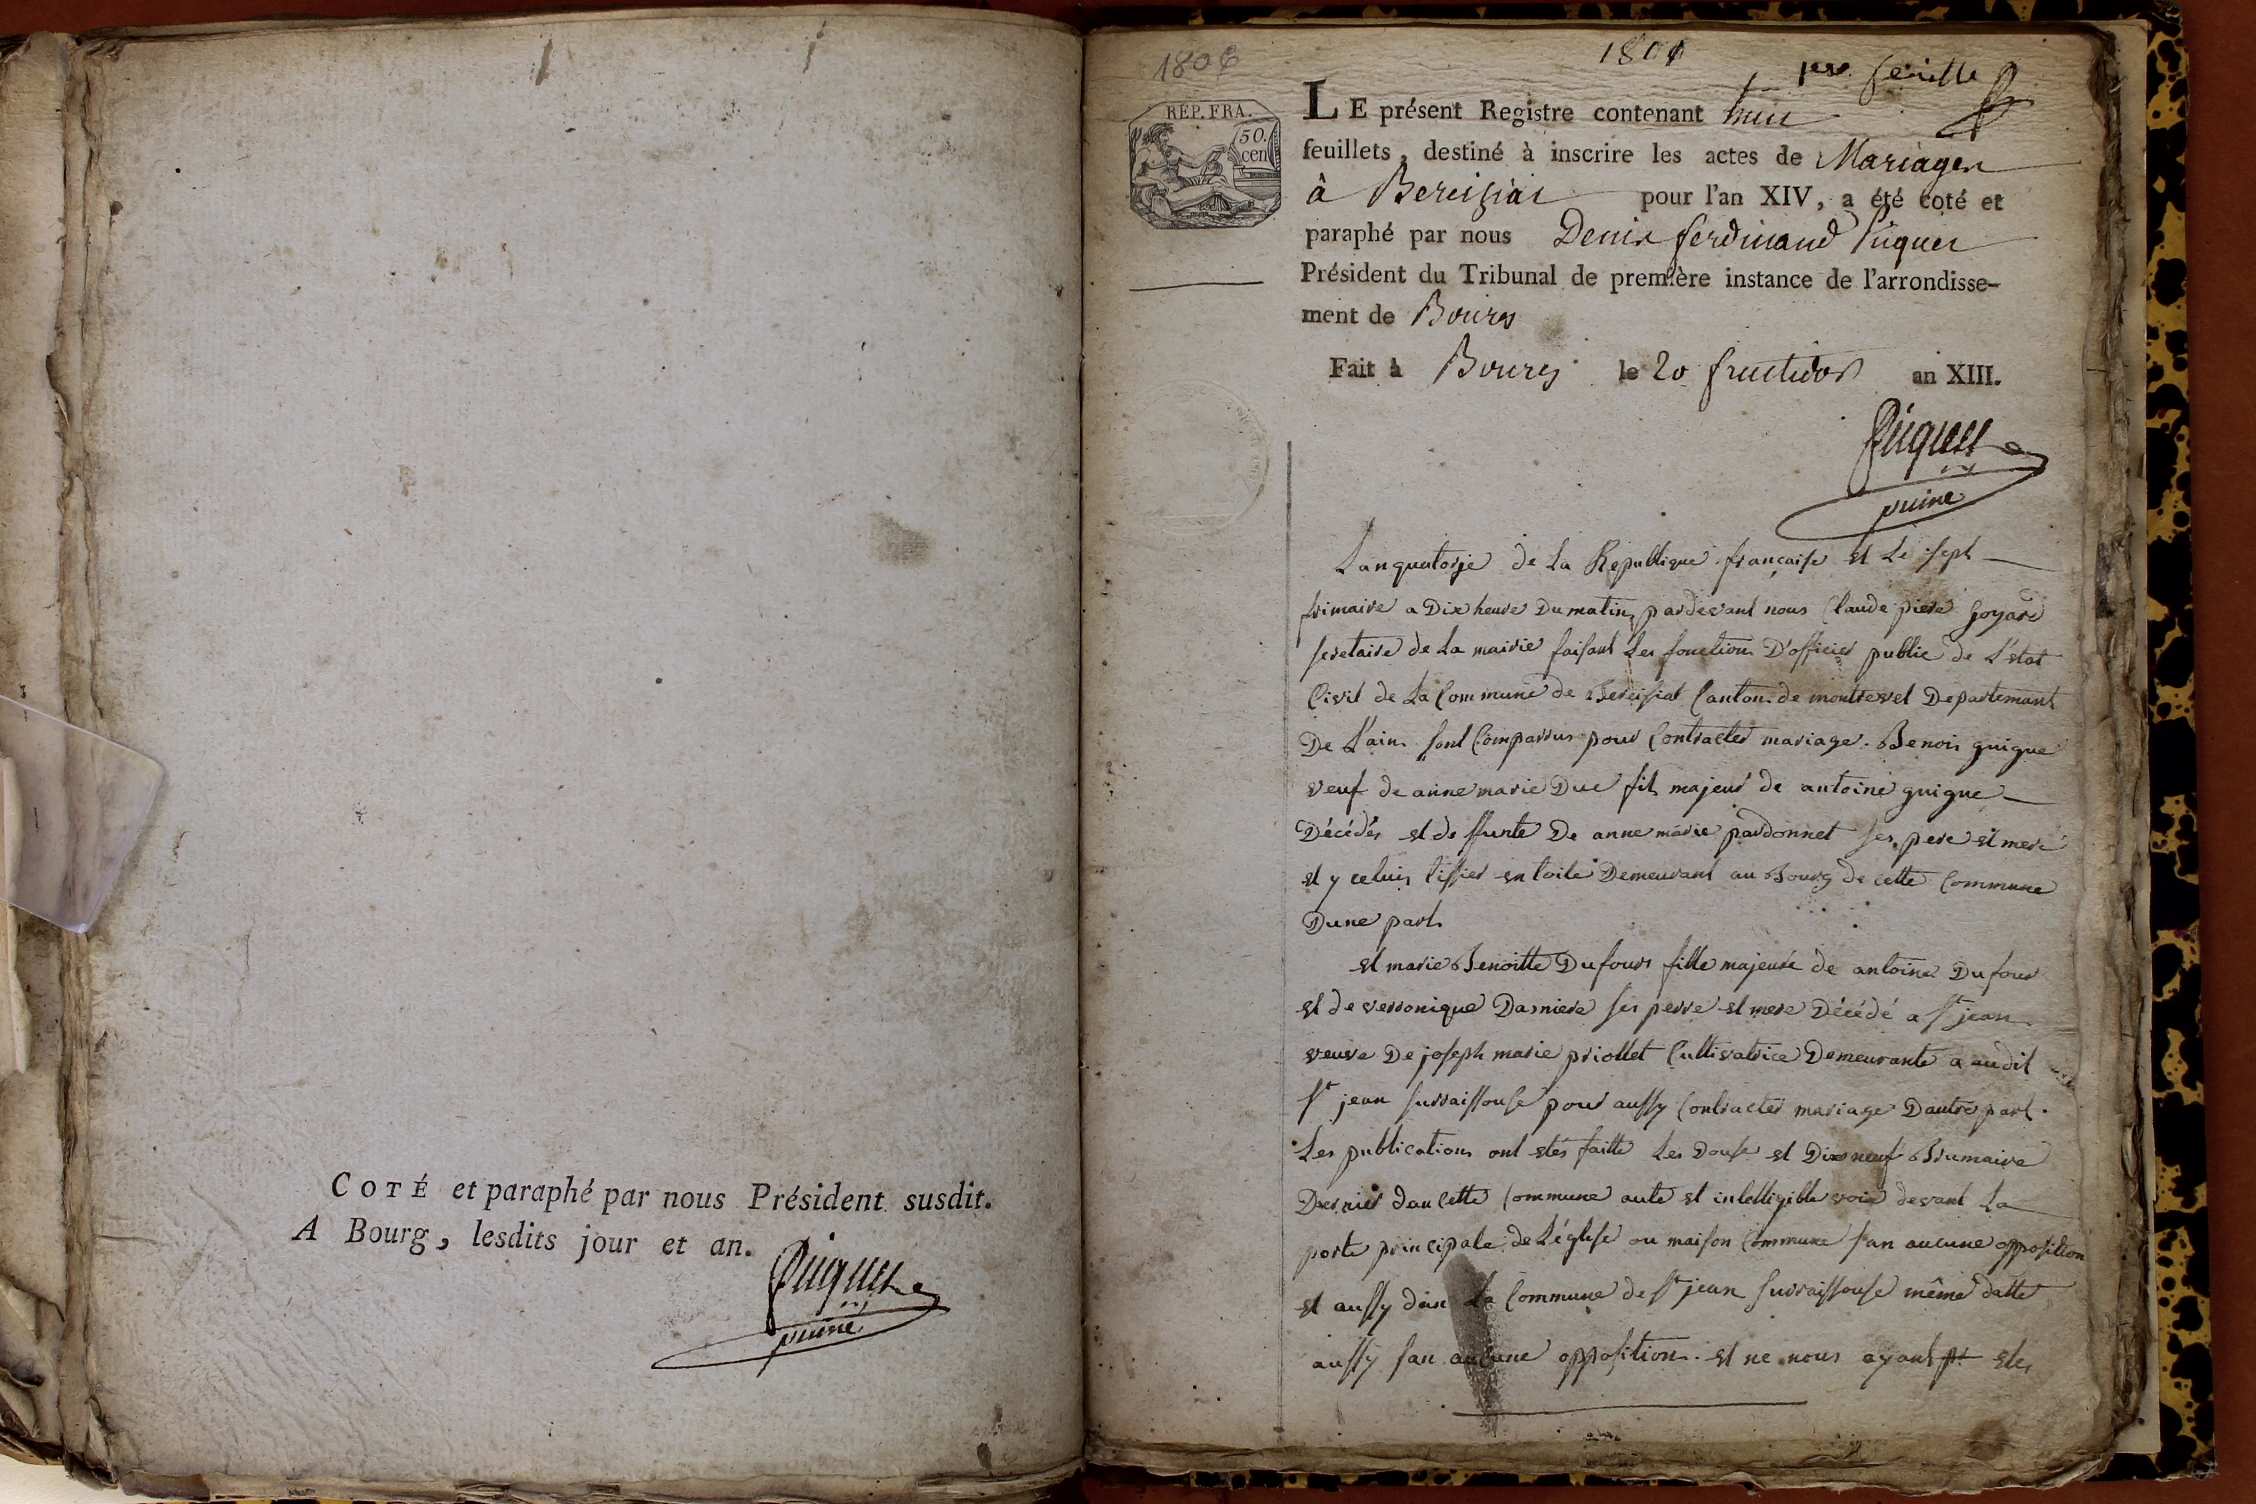 COTÉ et paraphé par nous Président susdit.
A Bourg, lesdits jour et an.
Puiguet
puiné
1806
1806
1er feuillet
REP. FRA.
50.
cen
LE présent Registre contenant huit
feuillets, destiné à inscrire les actes de Mariages
à Bereiziat pour l'an XIV, a été coté et
paraphé par nous Denis ferdinand
Président du Tribunal de première instance de l'arrondisse-
ment de Bourg
Fait à Bourg le 20 fructidor an XIII.
puiné
Lan quatorze de La Republique française et Le sept
frimaire a Dix heure Du matin pardevant nous Claude piere goyard
secretaire de La mairie faisant Les fonction D'officier public de L'etat
Civil de La Commune de Bereisiat Canton de montrevel Departemant
De L'ain sont Comparrus pour Contracter mariage. Benoit guigue
veuf de anne marie Duc fils majeur de antoine guigue
Décédés et deffunte De anne marie pardonnet ses pere et mere
et y celuy tissier en toile Demeurant au Bourg de cette Commune
Dune part
et marie Benoitte Dufour fille majeure de antoine Dufour
et de verronique Darniere ses perre et mere Décédé a St jean
veuve De joseph marie priollet Cultivatrice Demeurante a audit
St jean surraissouse pour aussy Contracter mariage Dautre part.
Les publications ont etés faitte Les Douse et Dix neuf Brumaire
Dernier dan Cette Commune aute et intelligible voix devant La
porte principale de L'église ou maison Commune san aucune opposition
et aussy dan La Commune de St jean surraissouse même datte
aussy san aucune opposition. et ne nous ayant etes